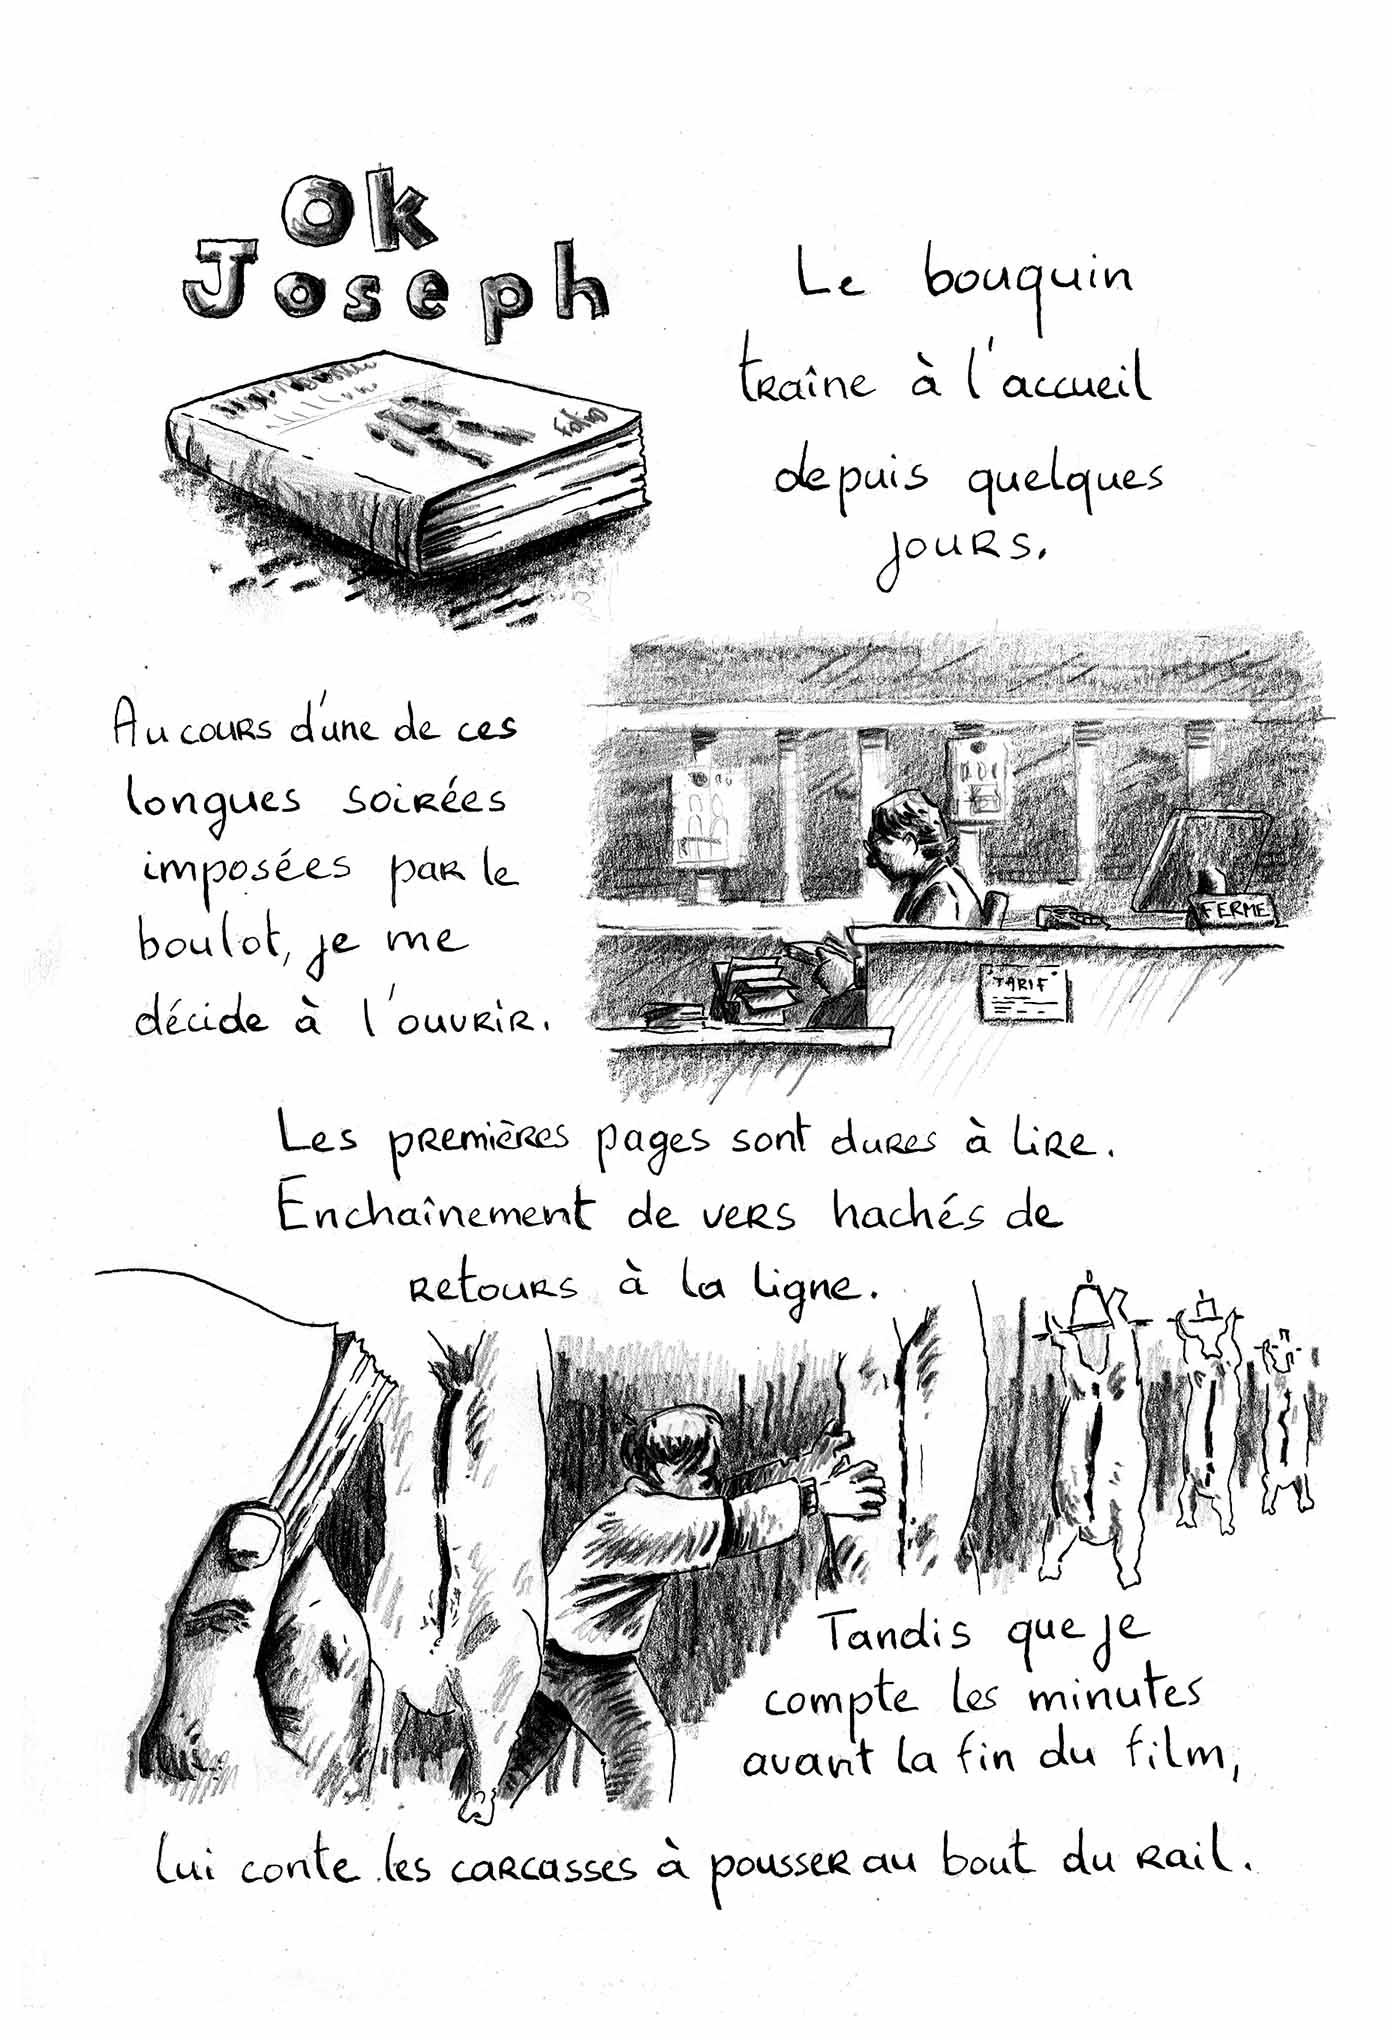 Ok
Joseph
Folio
Le bouquin
traîne à l'accueil
depuis quelques
jours.
Au cours d'une de ces
longues soirées
imposées par le
boulot, je me
décide à l'ouvrir.
FERME
TARIF
Les premières pages sont dures à lire.
Enchaînement de vers hachés de
retours à la ligne.
Tandis que je
compte les minutes
avant la fin du film,
lui conte les carcasses à pousser au bout du rail.